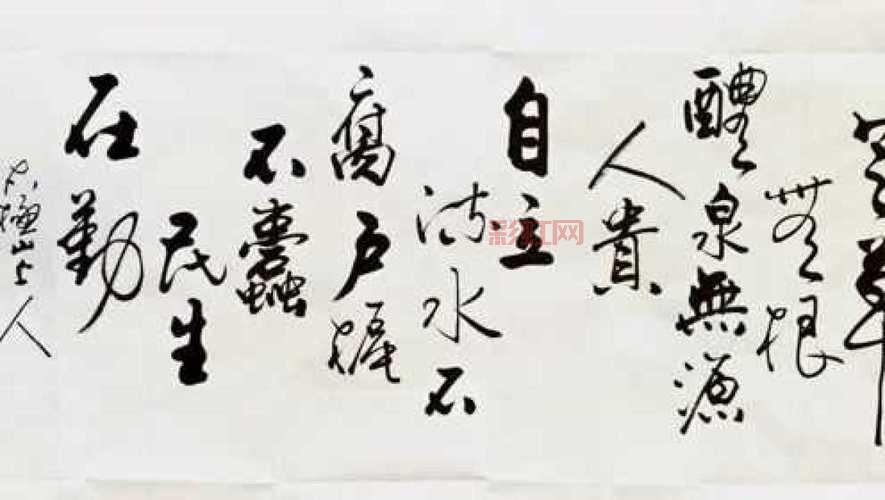 芝草
無根
醴泉無源
人貴
自立
流水不
腐户樞
不蠹
民生
在勤
山上人
彩虹网